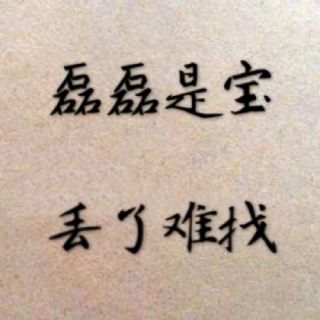 磊磊是宝
丢了难找